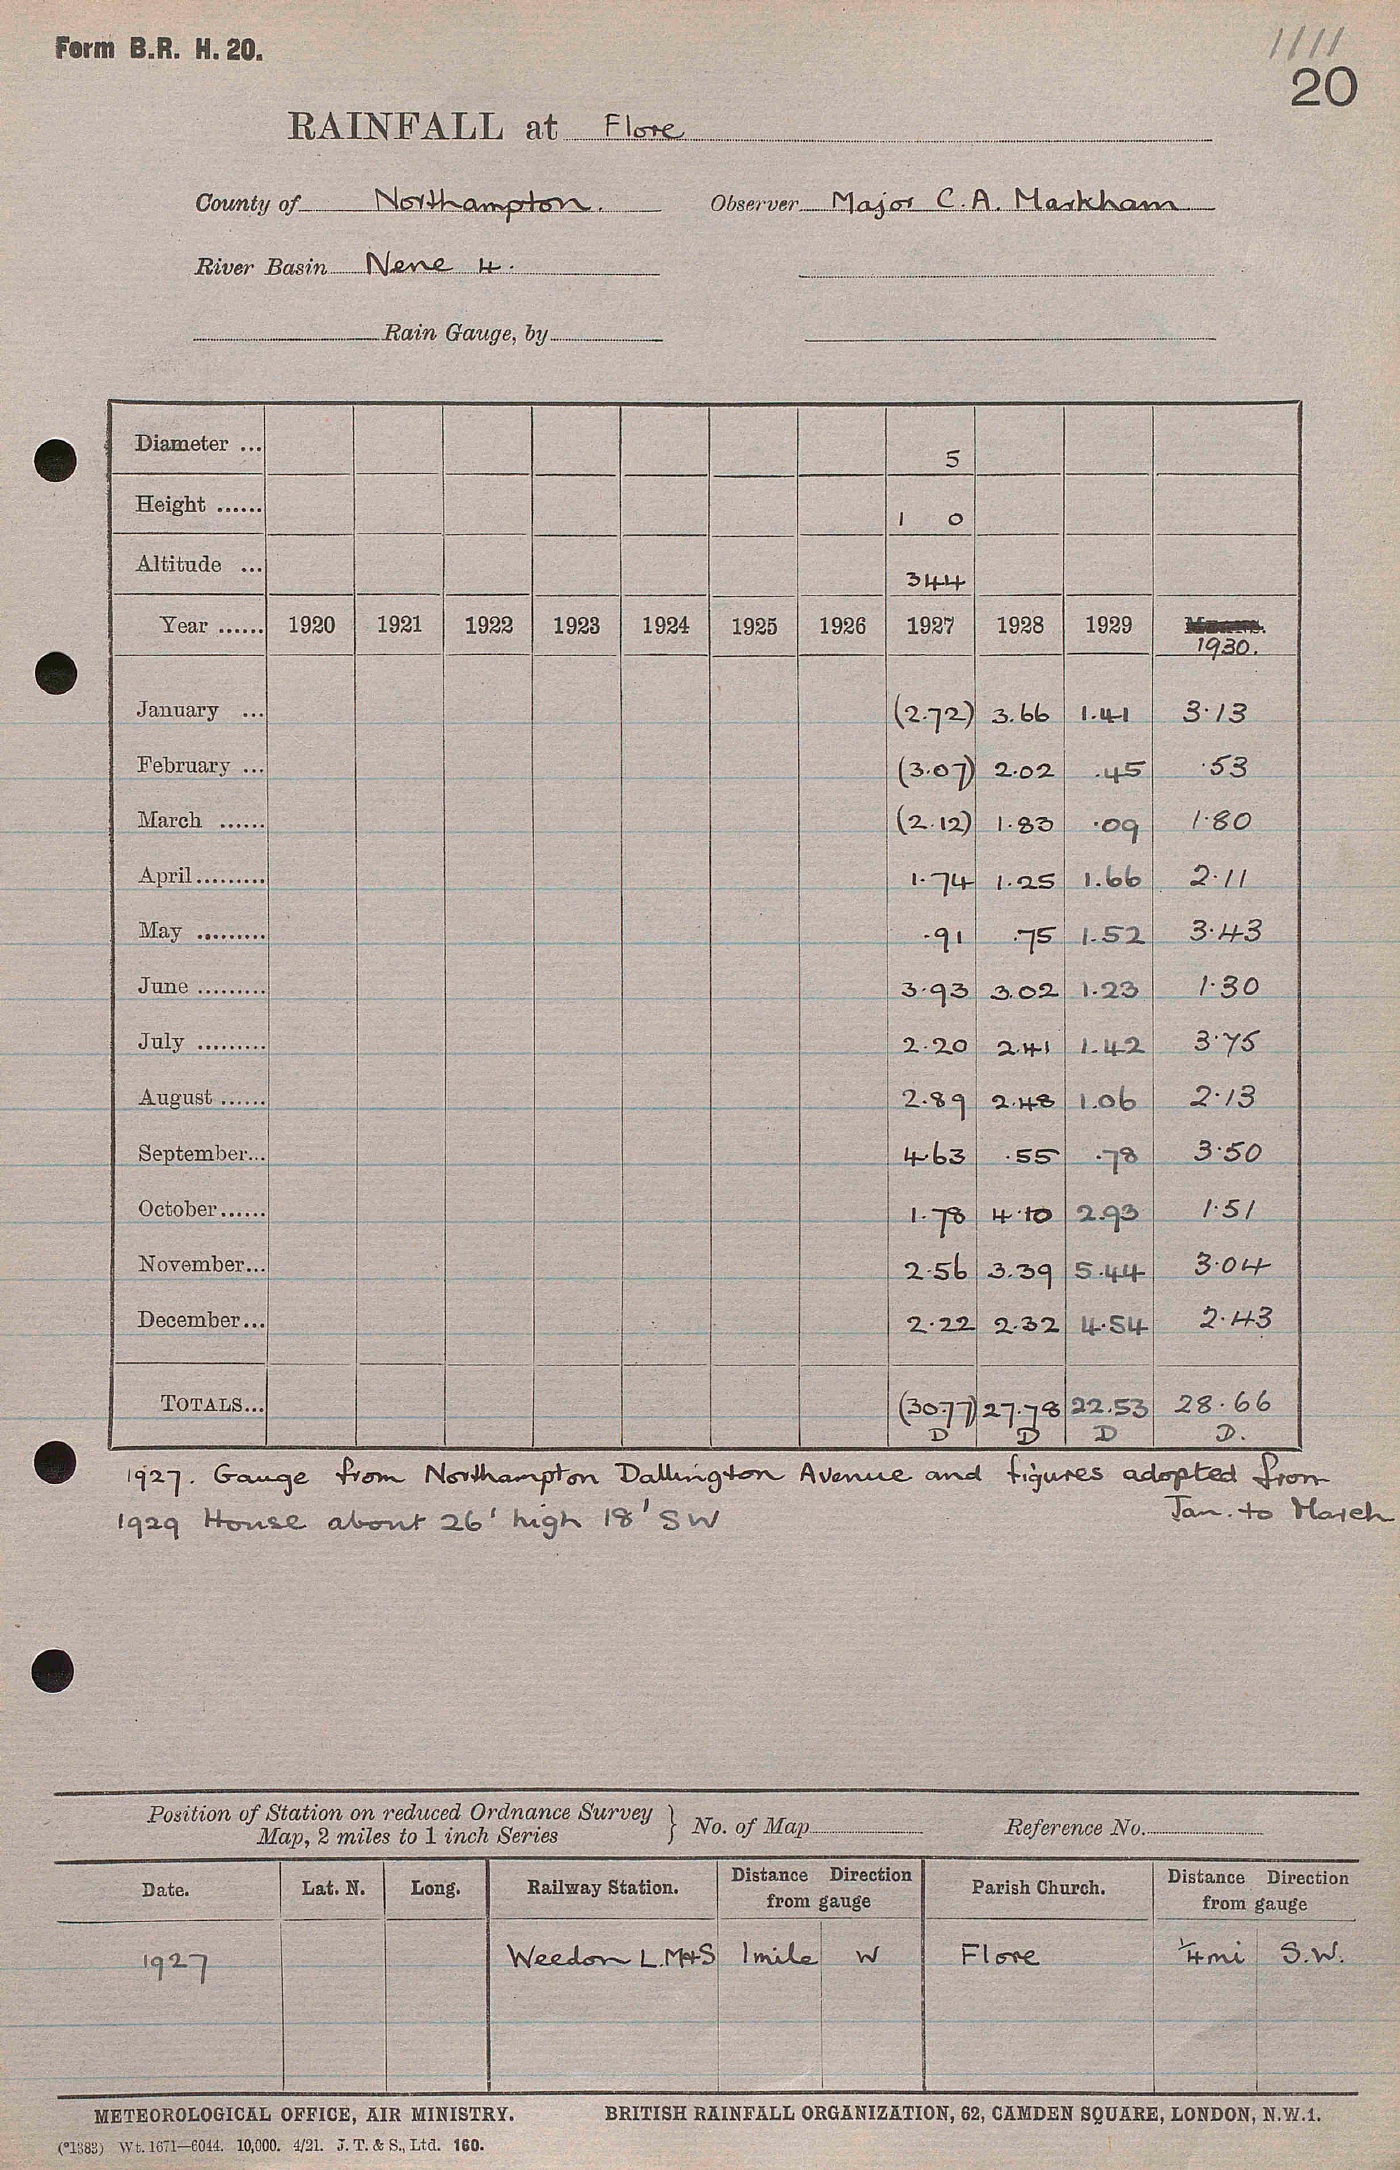 Form B.R. H. 20.
1111
20
RAINFALL at Flore
County of Northampton. Observer Major C.A. Markham
River Basin Nene 4.
Rain Gauge, by
Diameter ... 5
Height ...... 1 0
Altitude ... 344
Year ...... 1920 1921 1922 1923 1924 1925 1926 1927 1928 1929 1930.
January ... (2.72) 3.66 1.41 3.13
February ... (3.07) 2.02 .45 .53
March ...... (2.12) 1.83 .09 1.80
April......... 1.74 1.25 1.66 2.11
May ......... .91 .75 1.52 3.43
June ......... 3.93 3.02 1.23 1.30
July ......... 2.20 2.41 1.42 3.75
August ...... 2.89 2.48 1.06 2.13
September... 4.63 .55 .78 3.50
October...... 1.78 4.10 2.93 1.51
November... 2.56 3.39 5.44 3.04
December... 2.22 2.32 4.54 2.43
TOTALS... (30.77) 27.78 22.53 28.66
D D D D.
1927. Gauge from Northampton Dallington Avenue and figures adopted from
Jan. to March
1929 House about 26' high 18' SW
Position of Station on reduced Ordnance Survey
Map, 2 miles to 1 inch Series } No. of Map Reference No.
Date. Lat. N. Long. Railway Station. Distance Direction from gauge Parish Church. Distance Direction from gauge
1927 Weedon L.M+S 1mile W Flore 1/4mi S.W.
METEOROLOGICAL OFFICE, AIR MINISTRY. BRITISH RAINFALL ORGANIZATION, 62, CAMDEN SQUARE, LONDON, N.W.1.
(*1383) Wt. 1671—6044. 10,000. 4/21. J. T. & S., Ltd. 160.